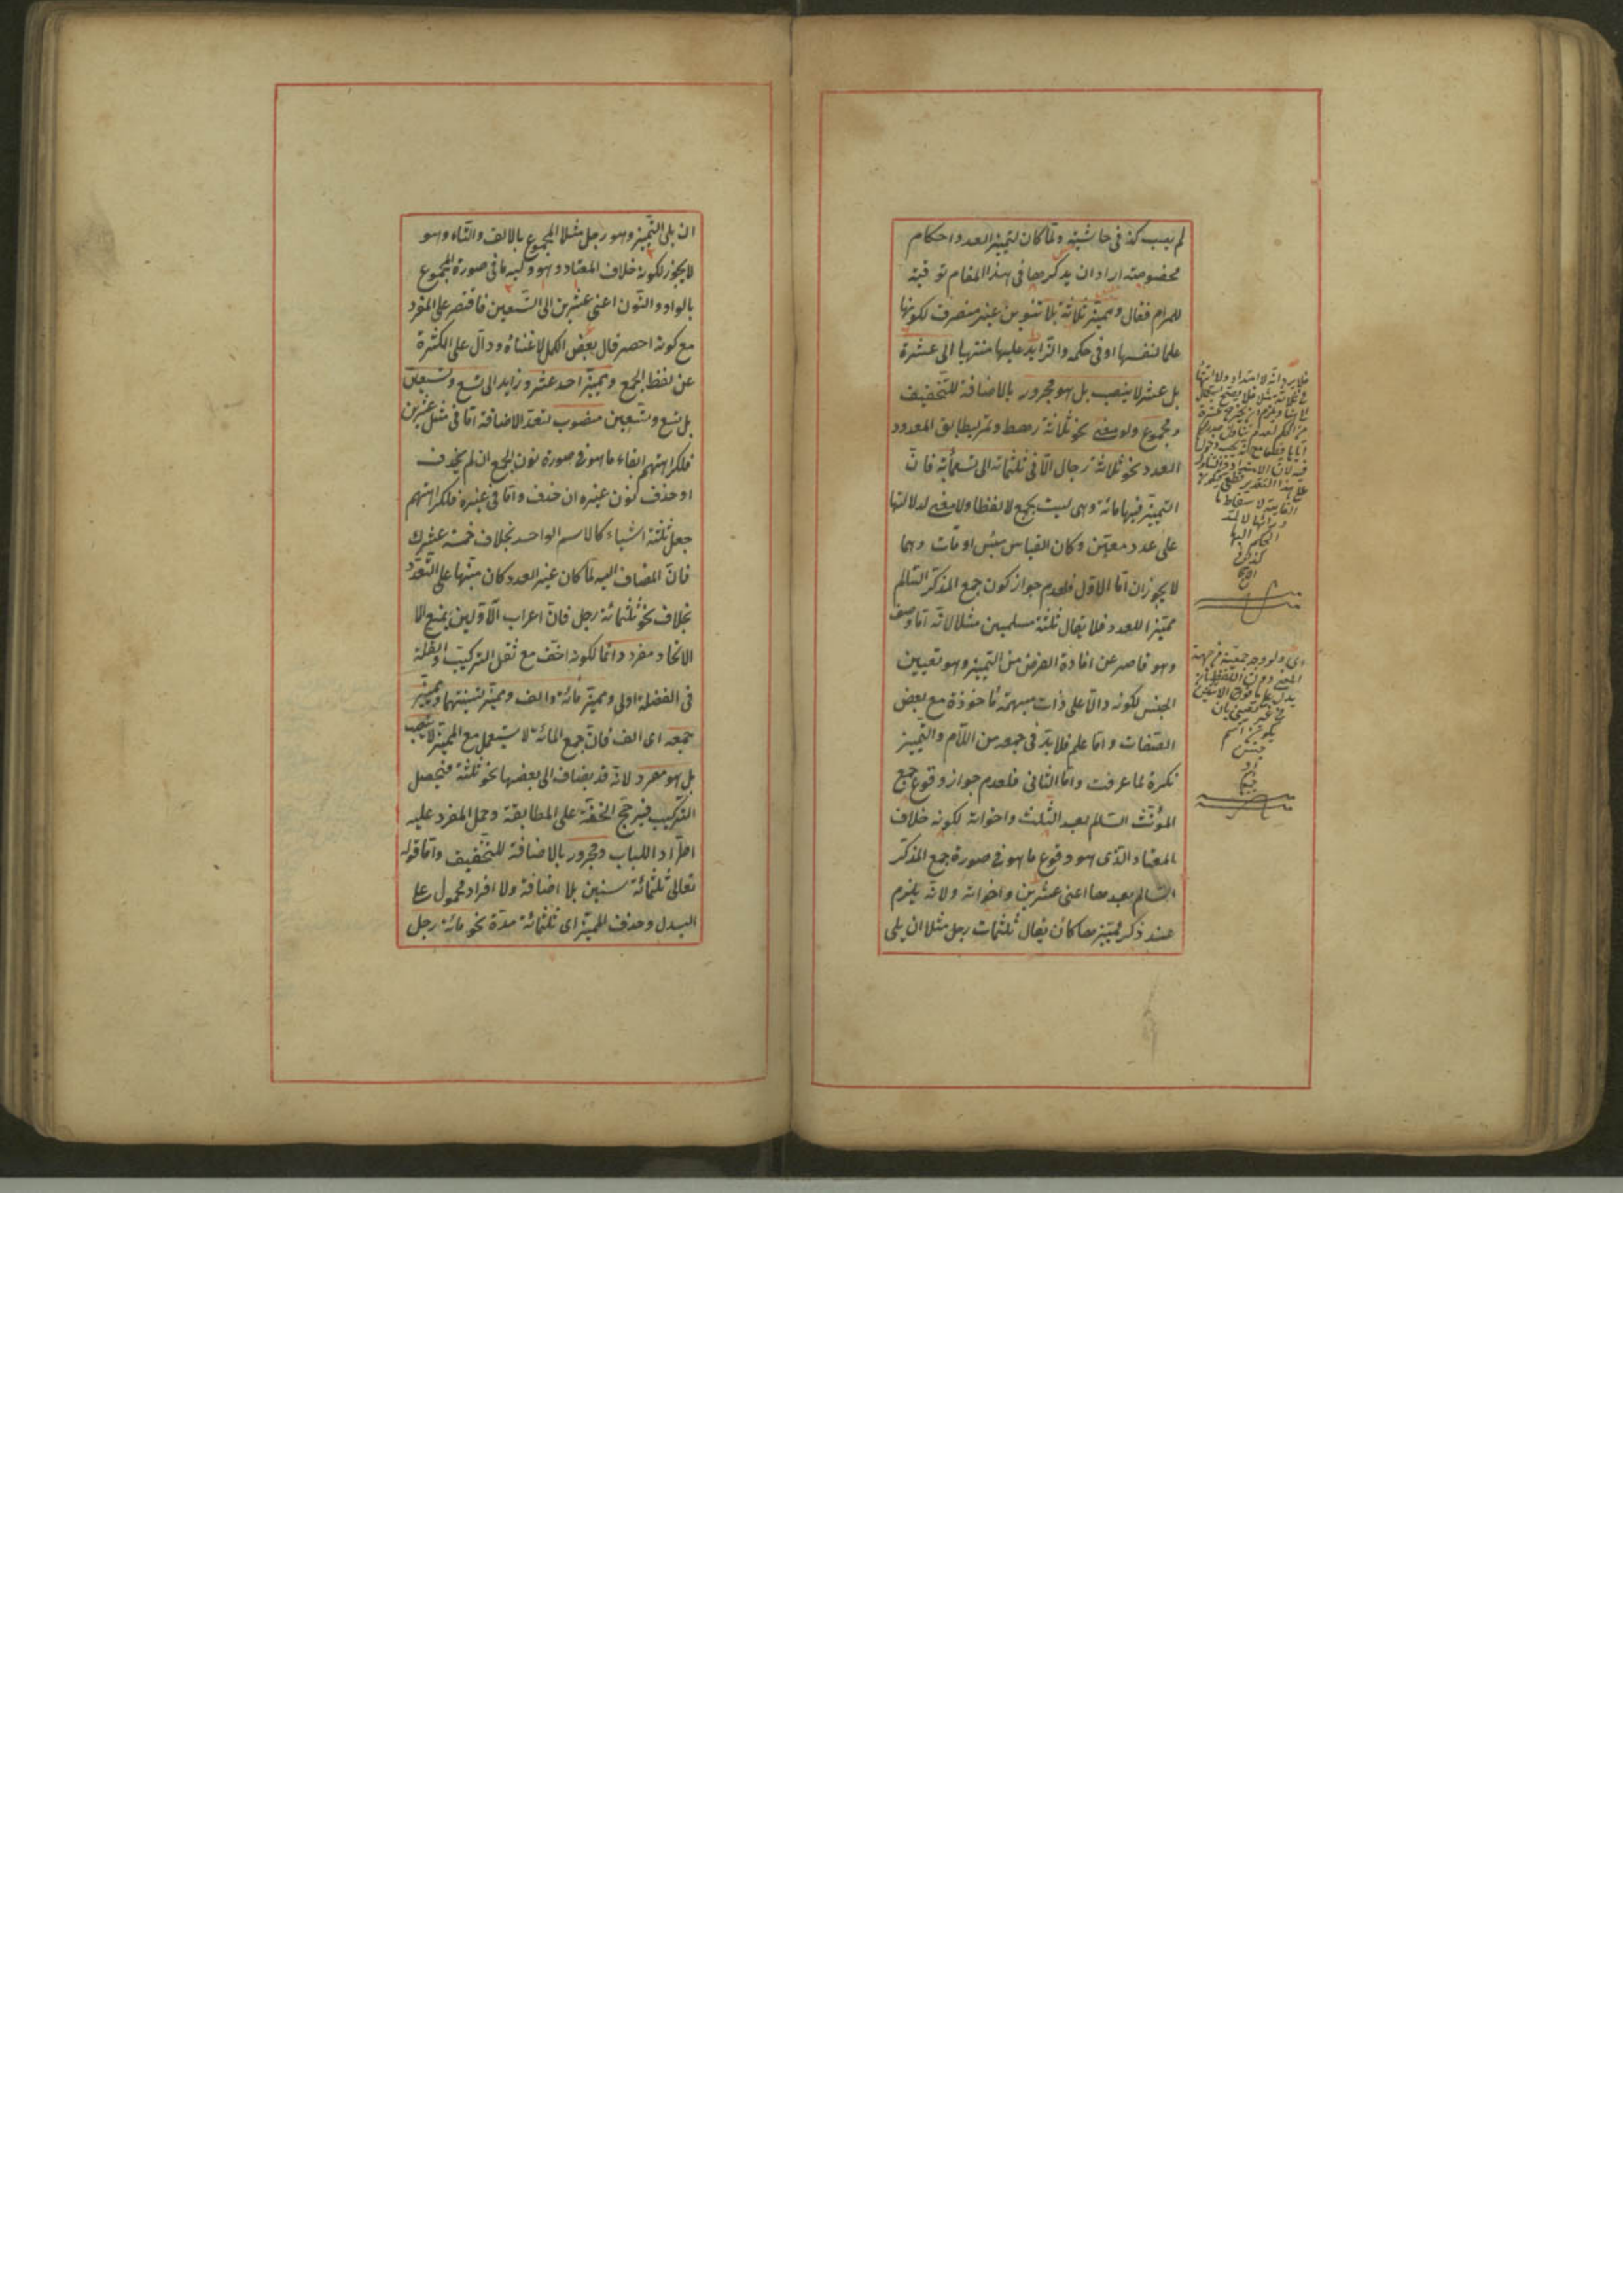 لم يصب كذا فى حاشيته ولما كان لتميز العدد احكام
مخصوصة اراد ان يذكرها فى هذا المقام توفية
للمرام فقال ومميز ثلاثة بلا تنوين غير منصرف لكونها
علما لنفسها او فى حكمه والتزايد عليها منتهيا الى عشرة
بل عشر لا ينصب بل هو مجرور بالاضافة للتخفيف
ومجموع ولو معنى نحو ثلاثة رهط وتمر ليطابق المعدود
العدد نحو ثلاثة رجال الا فى ثلثمائة الى تسعمائة فان
التميز فيها مائة وهى ليست بجمع لا لفظا ولا معنى لدلالتها
على عدد معين وكان القياس مئين او مآت وهما
لا يجوزان اما الاول فلعدم جواز كون جمع المذكر السالم
مميزا للعدد فلا يقال ثلثة مسلمين مثلا لانه اما وصف
وهو قاصر عن افادة الغرض من التميز وهو تعيين
الجنس لكونه دالا على ذات مبهمة مأخوذة مع بعض
الصفات واما علم فلا بد فى جمعه من اللام والتميز
نكرة لما عرفت واما الثانى فلعدم جواز وقوع جمع
المؤنث السالم بعد الثلث واخواته لكونه خلاف
المعتاد الذى هو وقوع ما هو فى صورة جمع المذكر
السالم بعدها اعنى عشرين واخواته ولانه يلزم
عند ذكر مميزها كأن يقال ثلثمات رجل مثلا ان يلى
فلا يرد انه لا امتداد ولا انتهاء
فى ثلاثة مثلا فلا يصح
على هذا التقدير
الغاية لاسقاط ما
ورائها لا لمد
الحكم اليها
اى ولو وجد جمعية من جهة
المعنى دون اللفظ بان
يدل على ما فوق الاثنين
من غير تعيين بان
يكون اسم
جنس
ان يلى التميز وهو رجل مثلا المجموع بالالف والتاء وهو
لا يجوز لكونه خلاف المعتاد وهو وليه ما فى صورة المجموع
بالواو والنون اعنى عشرين الى التسعين فاقتصر على المفرد
مع كونه اخصر قال بعض الكمل لاغناؤه ودال على الكثرة
عن لفظ الجمع ومميز احد عشر وزايد الى تسع وتسعين
بل تسع وتسعين منصوب لتعذر الاضافة اما فى مثل عشرين
فلكراهتهم ابقاء ما هو فى صورة نون الجمع ان لم يحذف
او حذف كنون غيره ان حذف واما فى غيره فلكراهتهم
جعل ثلثة اشياء كالاسم الواحد بخلاف خمسة عشرك
فان المضاف اليه لما كان غير العدد كان منبها على التعدد
بخلاف نحو ثلثمائة رجل فان اعراب الاولين يمنع
الاتحاد مفرد دائما لكونه اخف مع ثقل التركيب والقلة
فى الفضلة اولى ومميز مائة والف ومميز تثنيتهما ومميز
جمعه اى الف فان جمع المائة لا يستعمل مع المميز لا ينصب
بل هو مفرد لانه قد يضاف الى بعضها نحو ثلثة فيحصل
التركيب فيرجح الخفة على المطابقة وحمل المفرد عليه
اطراد اللباب ومجرور بالاضافة للتخفيف واما قوله
تعالى ثلثمائة سنين بلا اضافة ولا افراد محمول على
البدل وحذف المميز اى ثلثمائة مدة نحو مائة رجل